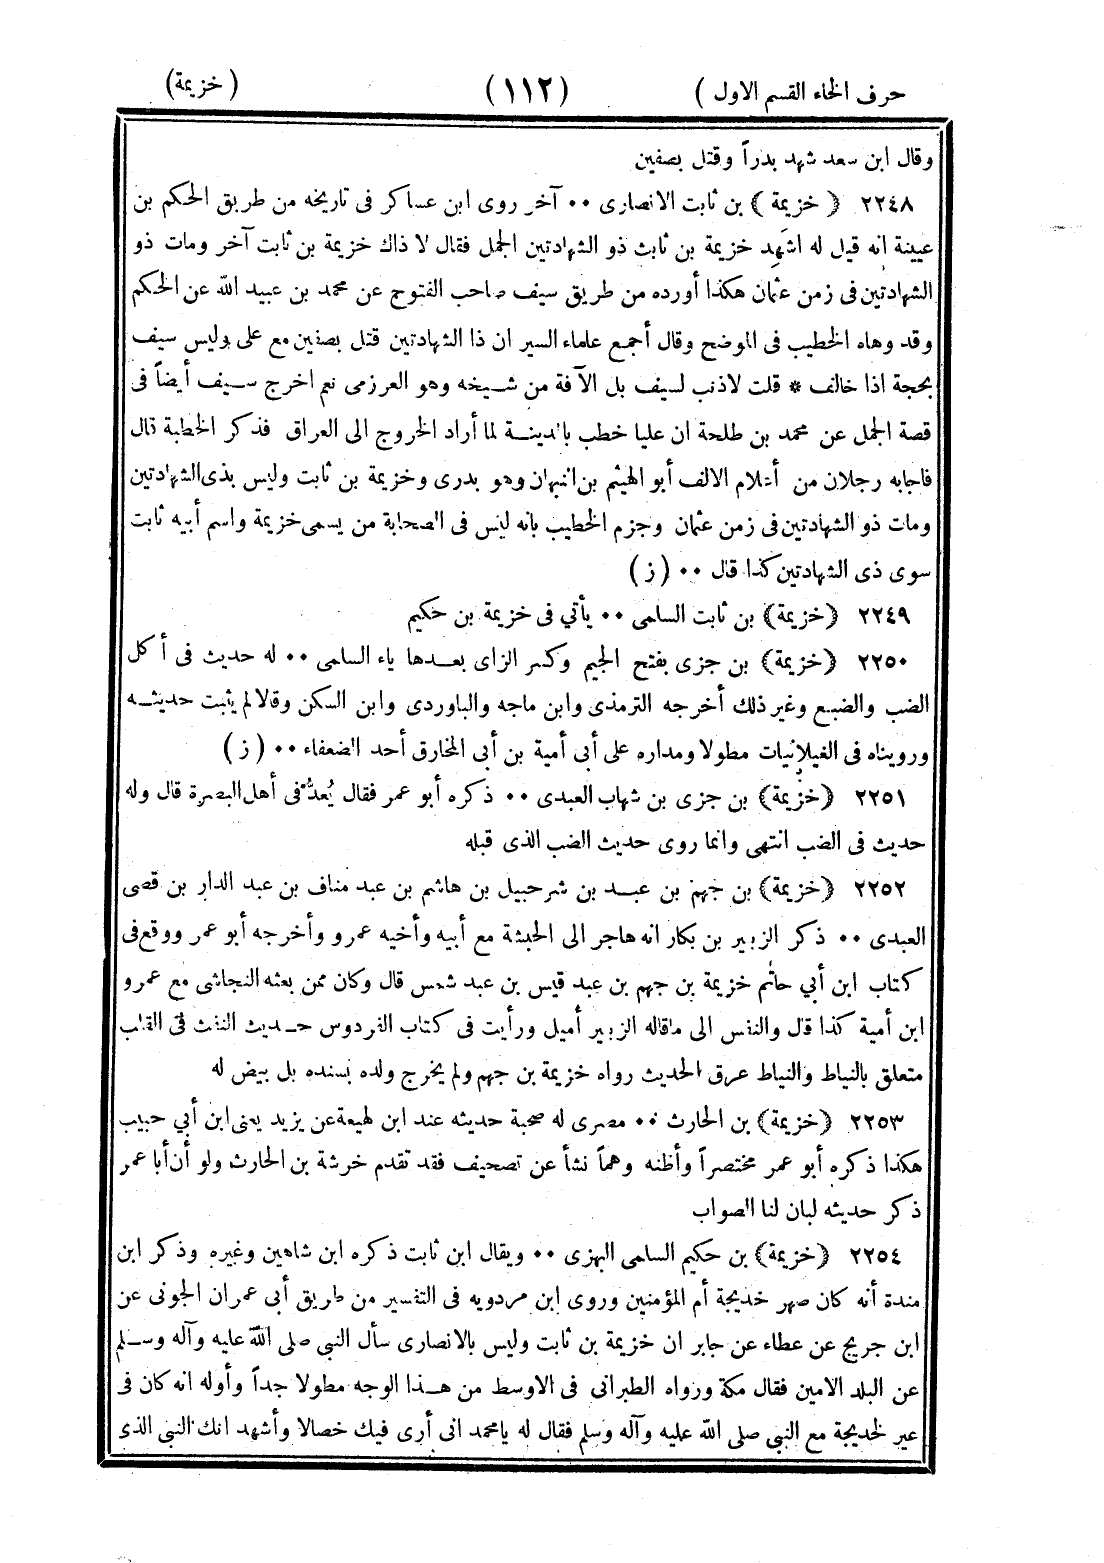 حرف الخاء القسم الاول ) (١١٢) (خزيمة)
وقال ابن سعد شهد بدراً وقتل بصفين
٢٢٤٨ (خزيمة) بن ثابت الانصارى ٠٠ آخر روى ابن عساكر فى تاريخه من طريق الحكم بن
عيينة انه قيل له اشهد خزيمة بن ثابت ذو الشهادتين الجمل فقال لا ذاك خزيمة بن ثابت آخر ومات ذو
الشهادتين فى زمن عثمان هكذا أورده من طريق سيف صاحب الفتوح عن محمد بن عبيد الله عن الحكم
وقد وهاه الخطيب فى الموضح وقال أجمع علماء السير ان ذا الشهادتين قتل بصفين مع على وليس سيف
بحجة اذا خالف * قلت لاذنب لسيف بل الآفة من شيخه وهو العرزمى نعم اخرج سيف أيضاً فى
قصة الجمل عن محمد بن طلحة ان عليا خطب بالمدينة لما أراد الخروج الى العراق فذكر الخطبة قال
فاجابه رجلان من أعلام الالف أبو الهيثم بن التيهان وهو بدرى وخزيمة بن ثابت وليس بذى الشهادتين
ومات ذو الشهادتين فى زمن عثمان وجزم الخطيب بانه ليس فى الصحابة من يسمى خزيمة واسم أبيه ثابت
سوى ذى الشهادتين كذا قال ٠٠ (ز)
٢٢٤٩ (خزيمة) بن ثابت السلمى ٠٠ يأتي فى خزيمة بن حكيم
٢٢٥٠ (خزيمة) بن جزى بفتح الجيم وكسر الزاى بعدها ياء السلمى ٠٠ له حديث فى أكل
الضب والضبع وغير ذلك أخرجه الترمذى وابن ماجه والباوردى وابن السكن وقالا لم يثبت حديثه
ورويناه فى الغيلانيات مطولا ومداره على أبى أمية بن أبى المخارق أحد الضعفاء ٠٠ (ز)
٢٢٥١ (خزيمة) بن جزى بن شهاب العبدى ٠٠ ذكره أبو عمر فقال يُعدّ فى أهل البصرة قال وله
حديث فى الضب انتهى وانما روى حديث الضب الذى قبله
٢٢٥٢ (خزيمة) بن جهم بن عبد بن شرحبيل بن هاشم بن عبد مناف بن عبد الدار بن قصى
العبدى ٠٠ ذكر الزبير بن بكار انه هاجر الى الحبشة مع أبيه وأخيه عمرو وأخرجه أبو عمر ووقع فى
كتاب ابن أبي حاتم خزيمة بن جهم بن عبد قيس بن عبد شمس قال وكان ممن بعثه النجاشى مع عمرو
ابن أمية كذا قال والنفس الى ماقاله الزبير أميل ورأيت فى كتاب الفردوس حديث النفث فى القلب
متعلق بالنياط والنياط عرق الحديث رواه خزيمة بن جهم ولم يخرج ولده بسنده بل بيض له
٢٢٥٣ (خزيمة) بن الحارث ٠٠ مصرى له صحبة حديثه عند ابن لهيعة عن يزيد يعنى ابن أبي حبيب
هكذا ذكره أبو عمر مختصراً وأظنه وهماً نشأ عن تصحيف فقد تقدم خرشة بن الحارث ولو أن أبا عمر
ذكر حديثه لبان لنا الصواب
٢٢٥٤ (خزيمة) بن حكيم السلمى البهزى ٠٠ ويقال ابن ثابت ذكره ابن شاهين وغيره وذكر ابن
مندة أنه كان صهر خديجة أم المؤمنين وروى ابن مردويه فى التفسير من طريق أبى عمران الجونى عن
ابن جريج عن عطاء عن جابر ان خزيمة بن ثابت وليس بالانصارى سأل النبى صلى الله عليه وآله وسلم
عن البلد الامين فقال مكة ورواه الطبرانى فى الاوسط من هذا الوجه مطولا جداً وأوله انه كان فى
عير لخديجة مع النبى صلى الله عليه وآله وسلم فقال له يامحمد انى أرى فيك خصالا وأشهد انك النبى الذى